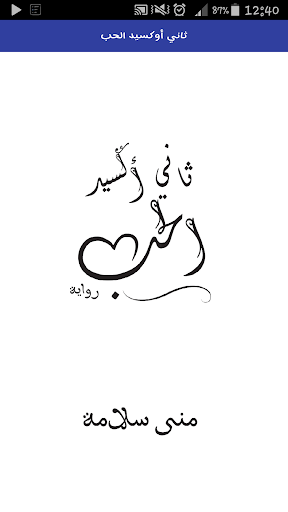 87% 12:40
ثاني أوكسيد الحب
ثاني أكسيد
الحب
رواية
منى سلامة